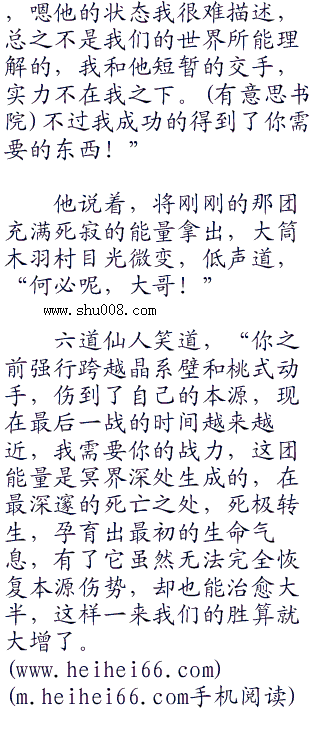 ，嗯他的状态我很难描述，
总之不是我们的世界所能理
解的，我和他短暂的交手，
实力不在我之下。(有意思书
院)不过我成功的得到了你需
要的东西！”
他说着，将刚刚的那团
充满死寂的能量拿出，大筒
木羽村目光微变，低声道，
“何必呢，大哥！”
www.shu008.com
六道仙人笑道，“你之
前强行跨越晶系壁和桃式动
手，伤到了自己的本源，现
在最后一战的时间越来越
近，我需要你的战力，这团
能量是冥界深处生成的，在
最深邃的死亡之处，死极转
生，孕育出最初的生命气
息，有了它虽然无法完全恢
复本源伤势，却也能治愈大
半，这样一来我们的胜算就
大增了。
(www.heihei66.com)
(m.heihei66.com手机阅读)